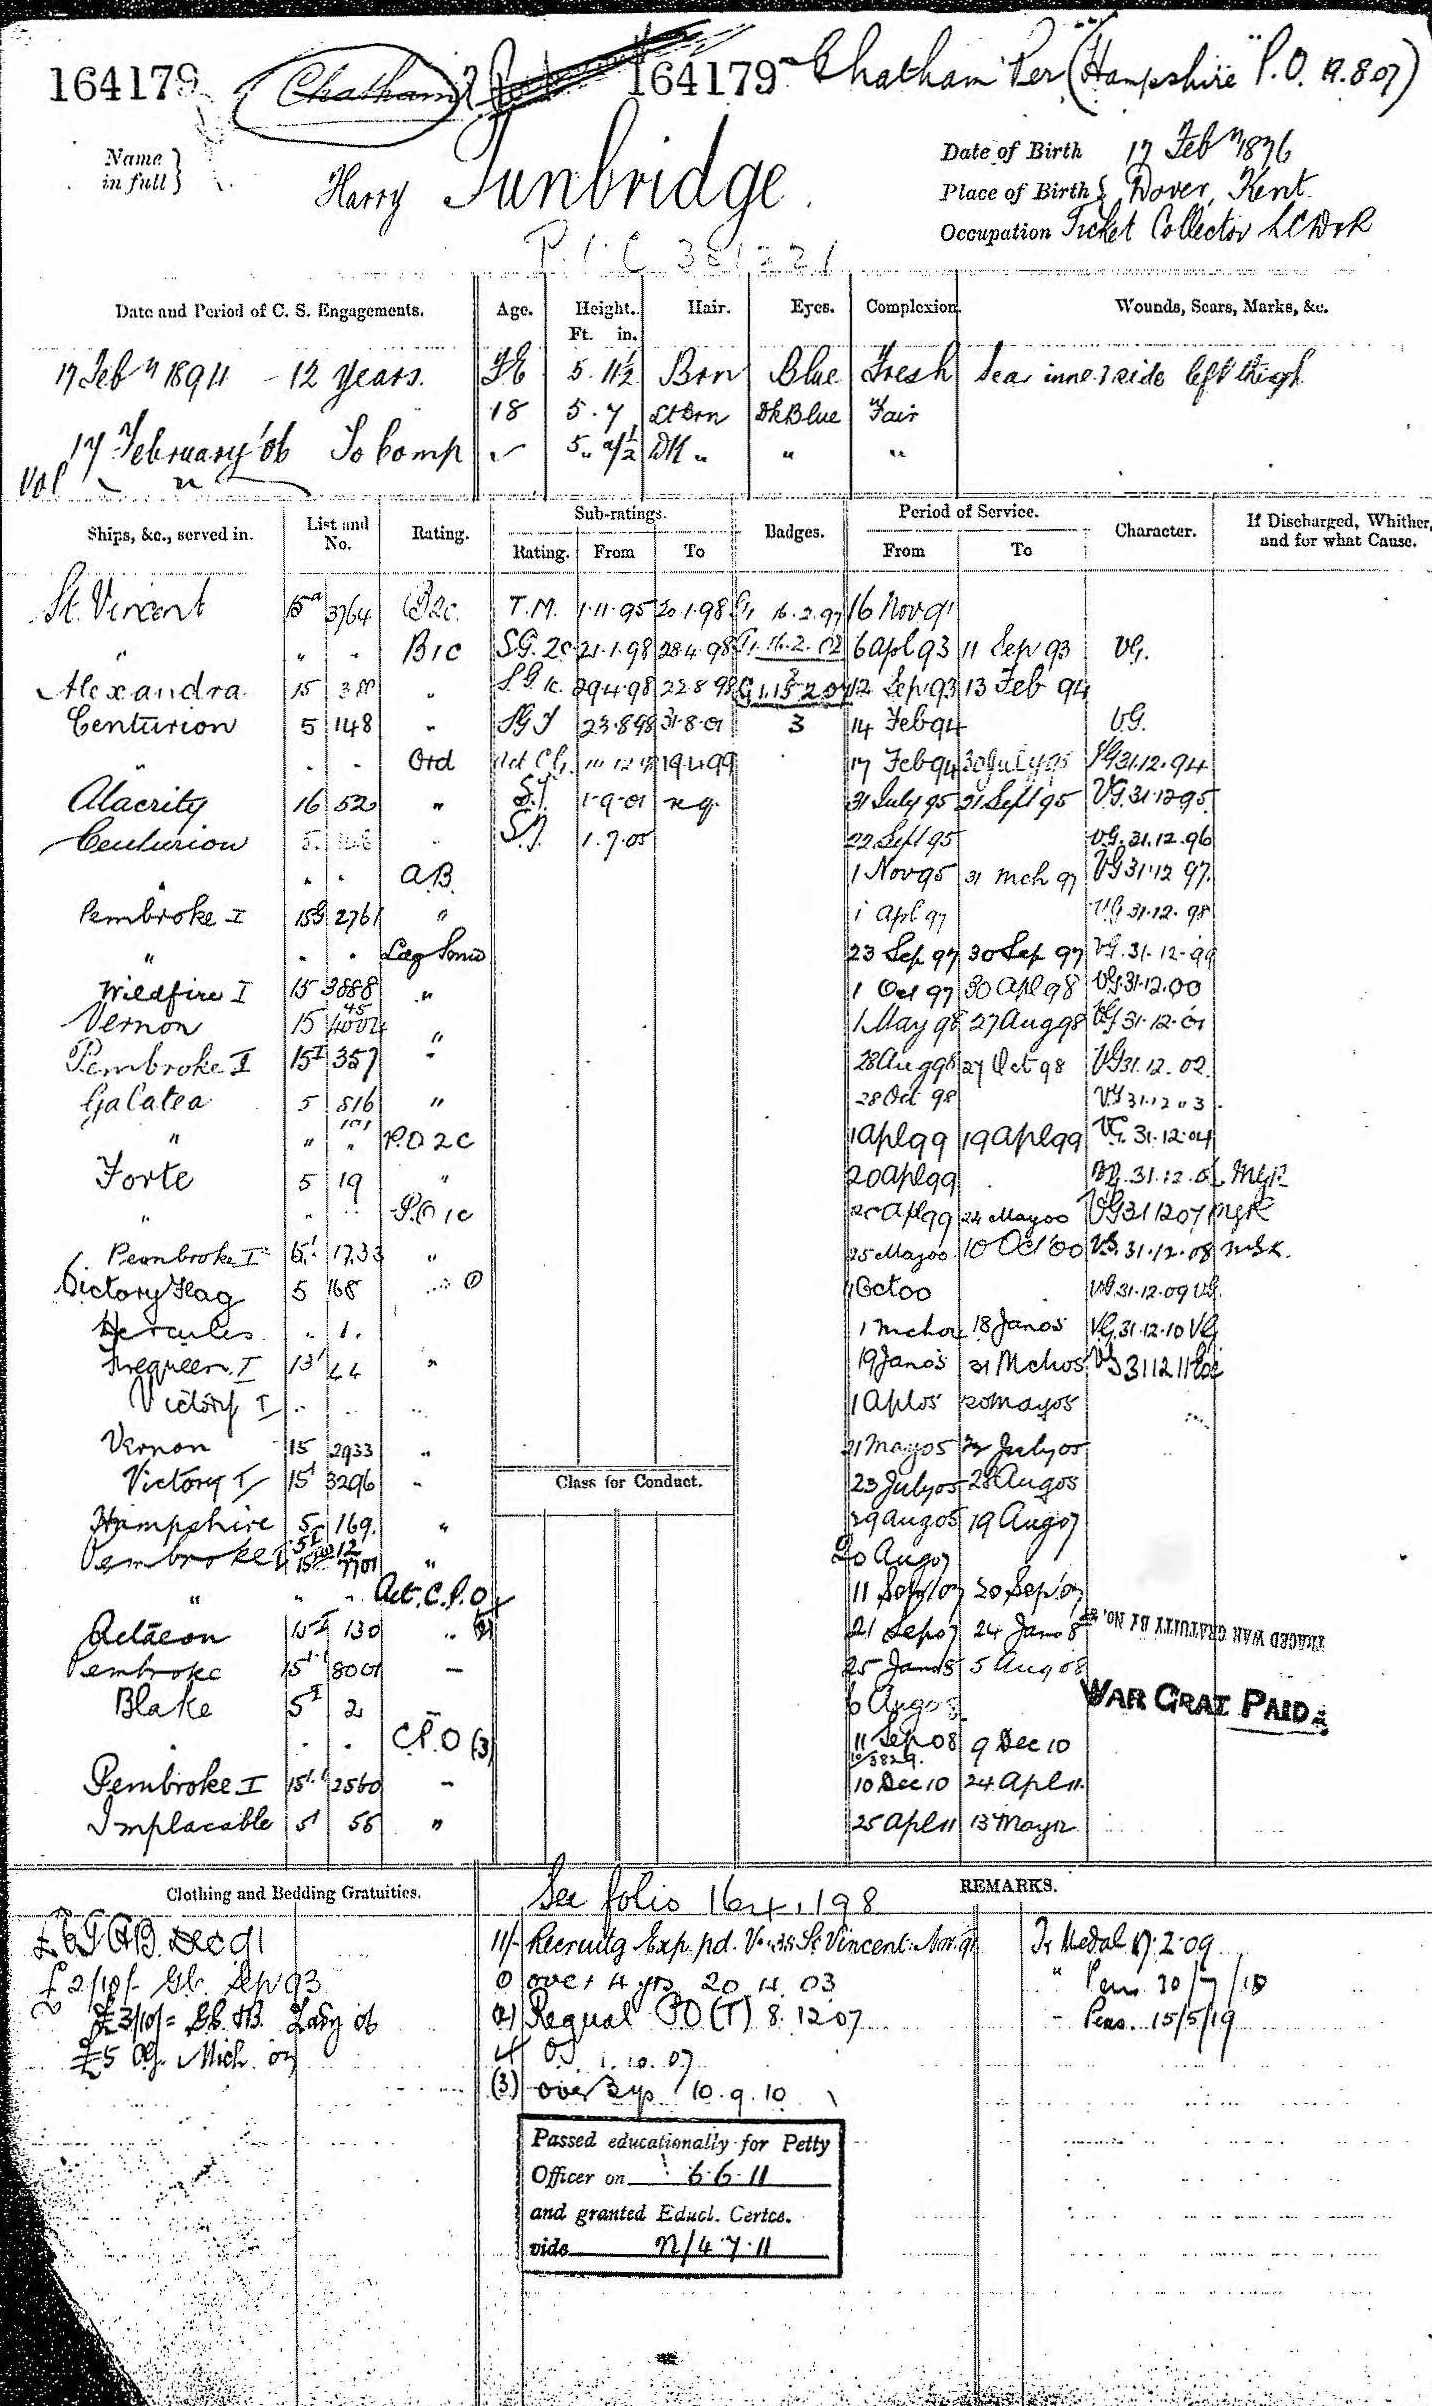 164179 Chatham 164179 Chatham Per (Hampshire P.O. 19.8.07)
Name in full } Harry Tunbridge
Date of Birth 17 Feby 1876
Place of Birth Dover, Kent
Occupation Ticket Collector LCDR
Date and Period of C. S. Engagements. Age. Height. Ft. in. Hair. Eyes. Complexion. Wounds, Scars, Marks, &c.
17 Feby 1894 - 12 years. 5. 1½ Brn Blue Fresh Scar inner side left thigh
18 5. 7 Lt Brn Dk Blue Fair
17 February '06 To Comp 5" 9½ DK " " "
Vol
Ships, &c., served in. List and No. Rating. Sub-ratings. Rating. From To Badges. Period of Service. From To Character. If Discharged, Whither, and for what Cause.
St. Vincent 15a 3764 B2c. T.M. 1.11.95 20.1.98 16.2.97 16 Nov 91
" " " B1c S.G. 2c 21.1.98 28.4.98 16.2.02 6 Apl 93 11 Sep 93 VG.
Alexandra 15 " S.G. 1c. 29.4.98 22.8.98 12 Sep 93 13 Feb 94
Centurion 5 148 " SGT 23.8.98 31.8.01 3 14 Feb 94 V.G.
" " " Ord 19.4.99 17 Feb 94 30 July 95 VG 31.12.94
Alacrity 16 52 " S.T. 1-9-01 31 July 95 21 Sept 95 VG. 31.12.95
Centurion S.T. 1.7.05 22 Sept 95 VG. 31.12.96
" " " A.B. 1 Nov 95 31 Mch 97 VG 31.12 97.
Pembroke I 15G 2761 " 1 Apl 97 VG 31.12. 98
" " " Ldg Sman 23 Sep 97 30 Sep 97 VG. 31.12.99
Wildfire I 15 3888 " 1 Oct 97 30 Apl 98 VG. 31.12.00
Vernon 15 " 1 May 98 27 Aug 98 VG 31.12.01
Pembroke I 15I 357 " 28 Aug 98 27 Oct 98 VG 31.12.02.
Galatea 5 516 " 28 Oct 98 VG 31.12.03
" " " P.O 2c 1 Apl 99 19 Apl 99 VG. 31.12.04
Forte 5 19 " 20 Apl 99 VG. 31.12.05
" " " P.O 1c 24 May 00 VG 31 12 07
Pembroke I 1733 " 25 May 00 10 Oct 00 VG. 31.12.08
Victory Flag 5 168 11 Oct 00 VG 31.12.09 VG.
Hercules " 1. 18 Jan 05 VG 31.12.10 VG
Firequeen I 15' 44 " 19 Jan 05 31 Mch 05 VG 31 12 11
Victory I " " " 1 Apl 05 20 May 05
Vernon 15 2933 " 21 May 05 22 July 05
Victory I 15' 3296 " 23 July 05 28 Aug 05
Class for Conduct.
Hampshire 5 169. " 29 Aug 05 19 Aug 07
Pembroke I 7701 " 20 Aug 07
" " " Act. C.P.O 11 Sep 07 20 Sep 07
Actaeon 15-I 130 " (2) 21 Sep 07 24 Jan 08
TRACED WAR GRATUITY
Pembroke 15' 8001 - 25 Jan 08 5 Aug 08
WAR GRAT PAID
Blake 5I 2 6 Aug 08
" " " C.P.O (3) 11 Sep 08 9 Dec 10
Pembroke I 15'I 2560 - 10 Dec 10 24 Apl 11.
Implacable 5I 55 " 25 Apl 11 13 May 12
Clothing and Bedding Gratuities. See folio 164,198 REMARKS.
£6 Dec 91 11/- Recruitg Exp. pd. St Vincent: Nov. 91 Gr Medal 17.2.09
£2/10/- Gb. Sep 93 over 4 yrs 20.4.03 " Pens 30/7/15
£3/10/= Gb. (2) Requal PO (T) 8.12 07 - Pens. 15/5/19
£5 1.10.07
(3) over 2 yrs 10.9.10
Passed educationally for Petty
Officer on 6.6.11
and granted Educl. Certce.
vide N/4.7.11